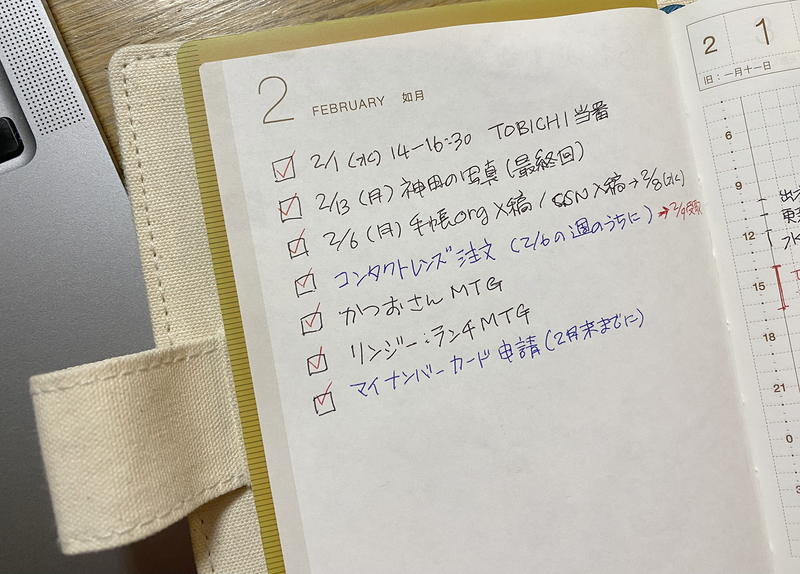 2 FEBRUARY 如月
2/1 (水) 14-16:30 TOBICHI当番
2/13 (月) 神田の写真 (最終回)
2/6 (月) 手帳org〆稿 / SSN〆稿→2/8(水)
コンタクトレンズ注文 (2/6の週のうちに) →2/9受取
かつおさんMTG
リンジー:ランチMTG
マイナンバーカード申請 (2月末までに)
2 1
旧:一月十一日
6
9
12
15
18
21
0
3